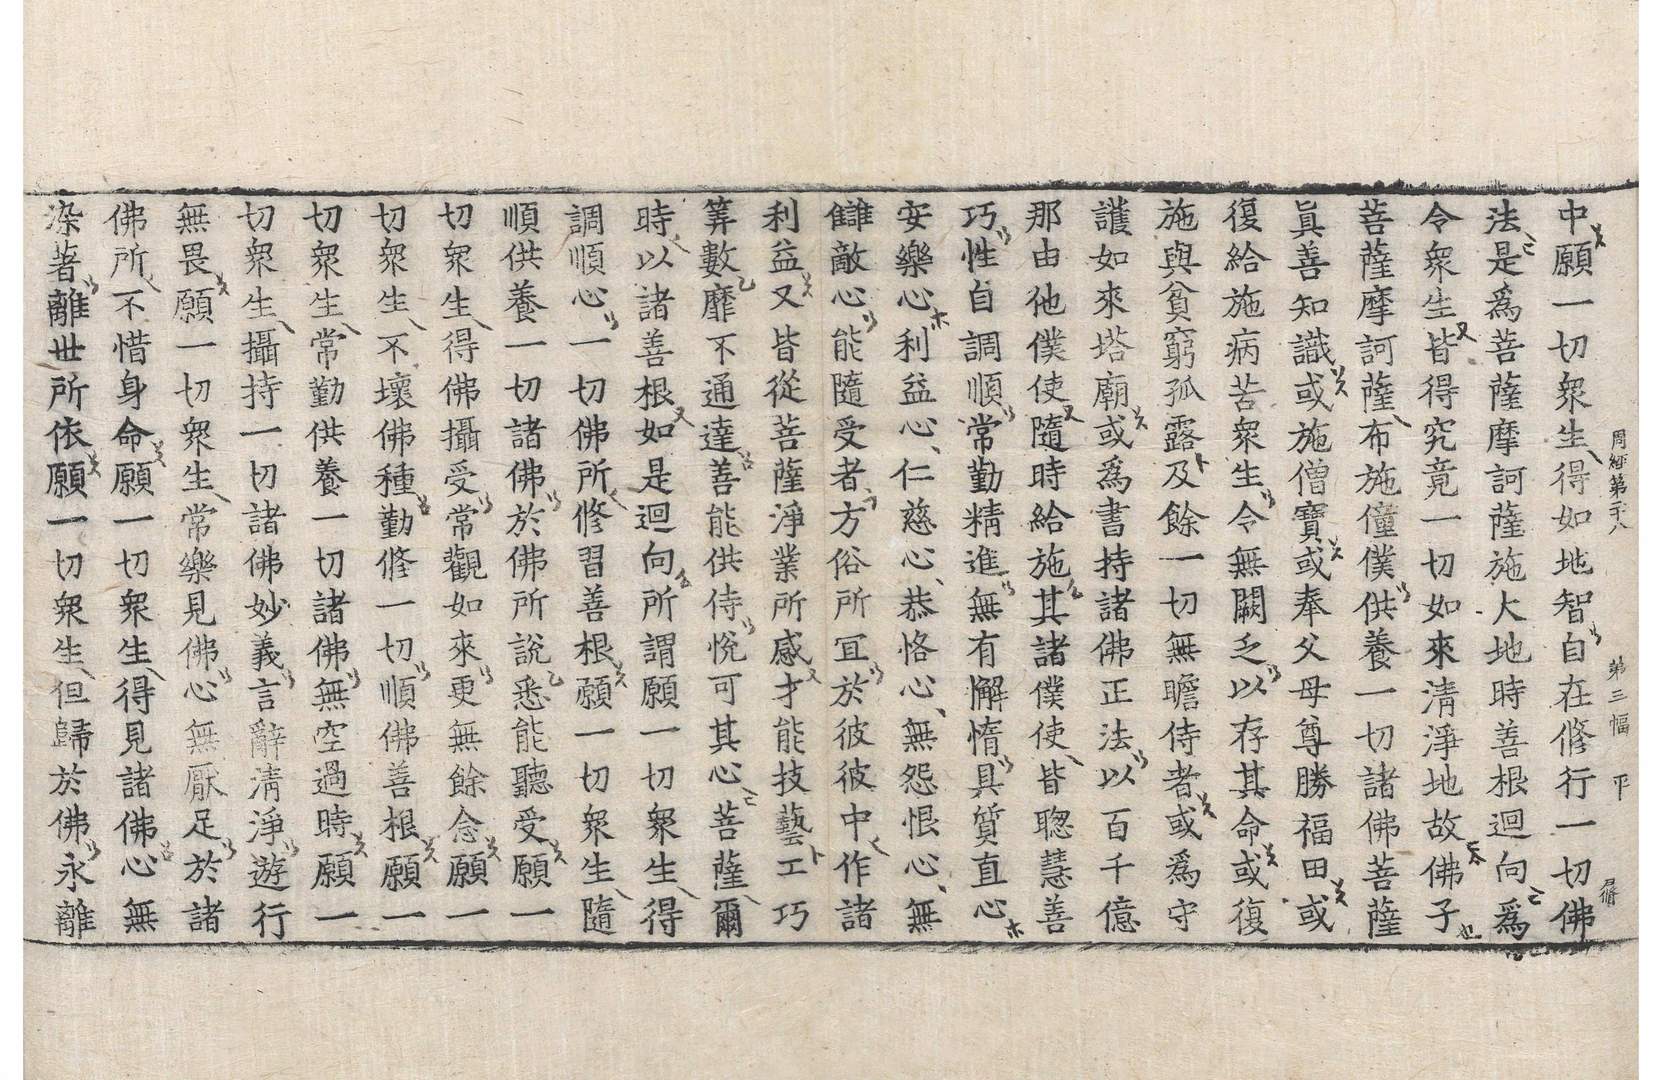 周經第二十八 第三幅 平 君脩
中願一切衆生得如地智自在修行一切佛
法是爲菩薩摩訶薩施大地時善根迴向爲
令衆生皆得究竟一切如來淸淨地故佛子
菩薩摩訶薩布施僮僕供養一切諸佛菩薩
眞善知識或施僧寶或奉父母尊勝福田或
復給施病苦衆生令無闕乏以存其命或復
施與貧窮孤露及餘一切無瞻侍者或爲守
護如來塔廟或爲書持諸佛正法以百千億
那由他僕使隨時給施其諸僕使皆聦慧善
巧性自調順常勤精進無有懈惰具質直心
安樂心利益心仁慈心恭恪心無怨恨心無
讎敵心能隨受者方俗所冝於彼彼中作諸
利益又皆從菩薩淨業所感才能技藝工巧
筭數靡不通達善能供侍悅可其心菩薩爾
時以諸善根如是迴向所謂願一切衆生得
調順心一切佛所修習善根願一切衆生隨
順供養一切諸佛於佛所說悉能聽受願一
切衆生得佛攝受常觀如來更無餘念願一
切衆生不壞佛種勤修一切順佛善根願一
切衆生常勤供養一切諸佛無空過時願一
切衆生攝持一切諸佛妙義言辭淸淨遊行
無畏願一切衆生常樂見佛心無厭足於諸
佛所不惜身命願一切衆生得見諸佛心無
染著離世所依願一切衆生但歸於佛永離